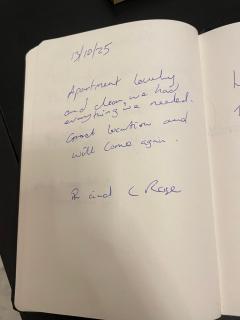 13/10/25
Apartment lovely
and clean, we had
everything we needed.
Great location and
will come again.
and C Rose